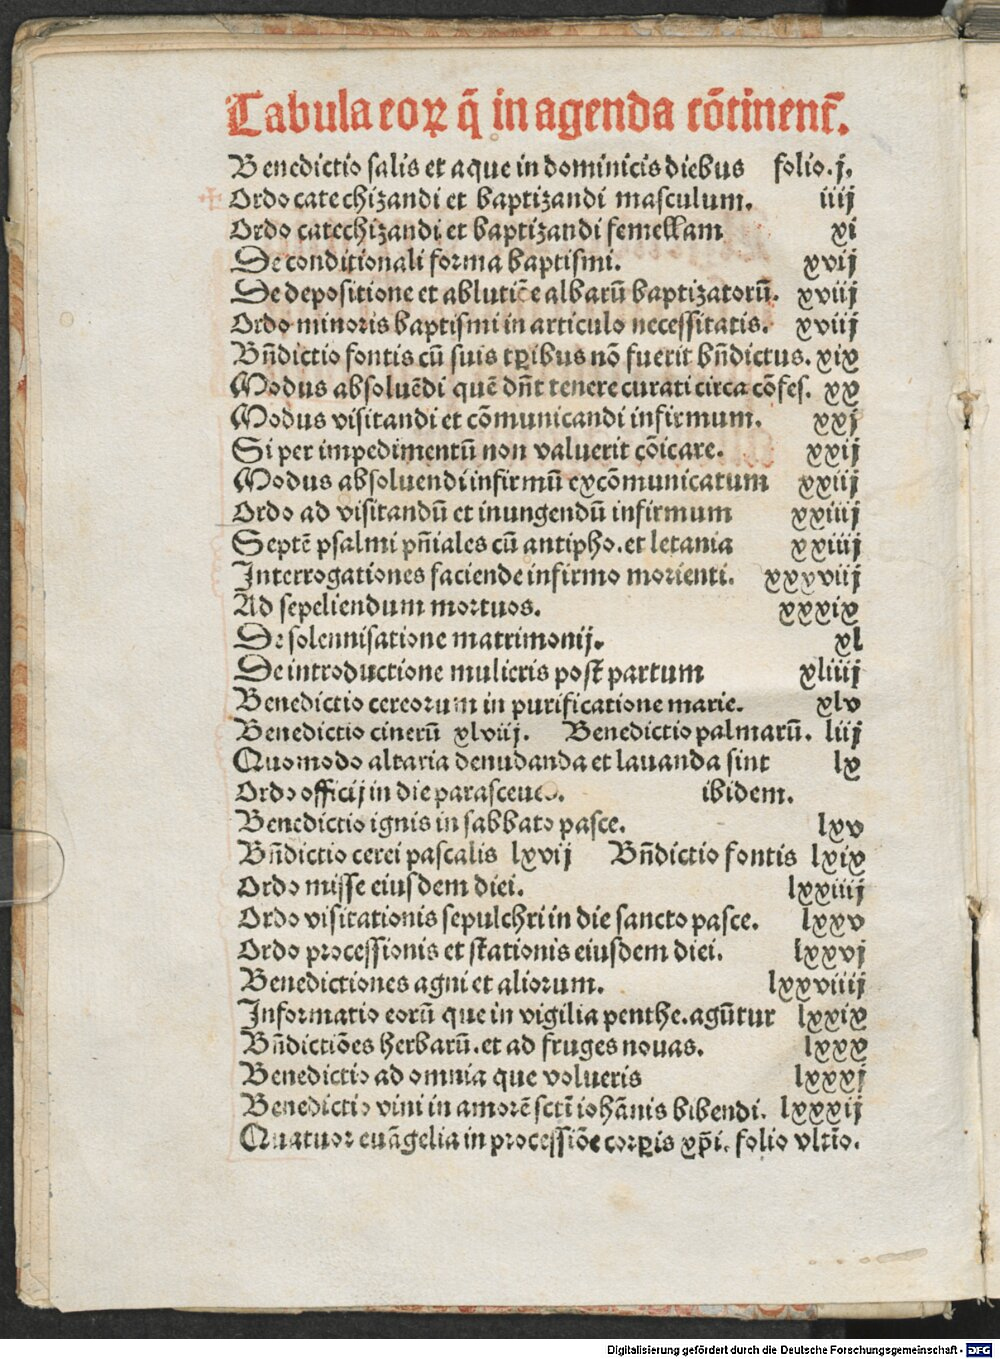 Tabula eoꝝ q̄ in agenda cōtinent̄.
Benedictio salis et aque in dominicis diebus folio.j.
Ordo catechizandi et baptizandi masculum. iiij
Ordo catechizandi et baptizandi femellam xi
De conditionali forma baptismi. xvij
De depositione et ablutiōe albarū baptizatorū. xviij
Ordo minoris baptismi in articulo necessitatis. xviij
Bn̄dictio fontis cū suis tꝑibus nō fuerit bn̄dictus. xix
Modus absoluēdi quē dn̄t tenere curati circa cōfes. xx
Modus visitandi et cōmunicandi infirmum. xxj
Si per impedimentū non valuerit cōicare. xxij
Modus absoluendi infirmū excōmunicatum xxiij
Ordo ad visitandū et inungendū infirmum xxiiij
Septē psalmi pn̄iales cū antipho. et letania xxiiij
Interrogationes faciende infirmo morienti. xxxviij
Ad sepeliendum mortuos. xxxix
De solennisatione matrimonij. xl
De introductione mulieris post partum xliiij
Benedictio cereorum in purificatione marie. xlv
Benedictio cinerū xlviij. Benedictio palmarū. liij
Quomodo altaria denudanda et lauanda sint lx
Ordo officij in die parasceues. ibidem.
Benedictio ignis in sabbato pasce. lxv
Bn̄dictio cerei pascalis lxvij Bn̄dictio fontis lxix
Ordo misse eiusdem diei. lxxiiij
Ordo visitationis sepulchri in die sancto pasce. lxxv
Ordo processionis et stationis eiusdem diei. lxxvj
Benedictiones agni et aliorum. lxxviiij
Informatio eorū que in vigilia penthe. agūtur lxxix
Bn̄dictiōes herbarū. et ad fruges nouas. lxxx
Benedictio ad omnia que volueris lxxxj
Benedictio vini in amorē sctī iohānis bibendi. lxxxij
Quatuor euāgelia in processiōe corꝑis xp̄i. folio vltīo.
Digitalisierung gefördert durch die Deutsche Forschungsgemeinschaft - DFG